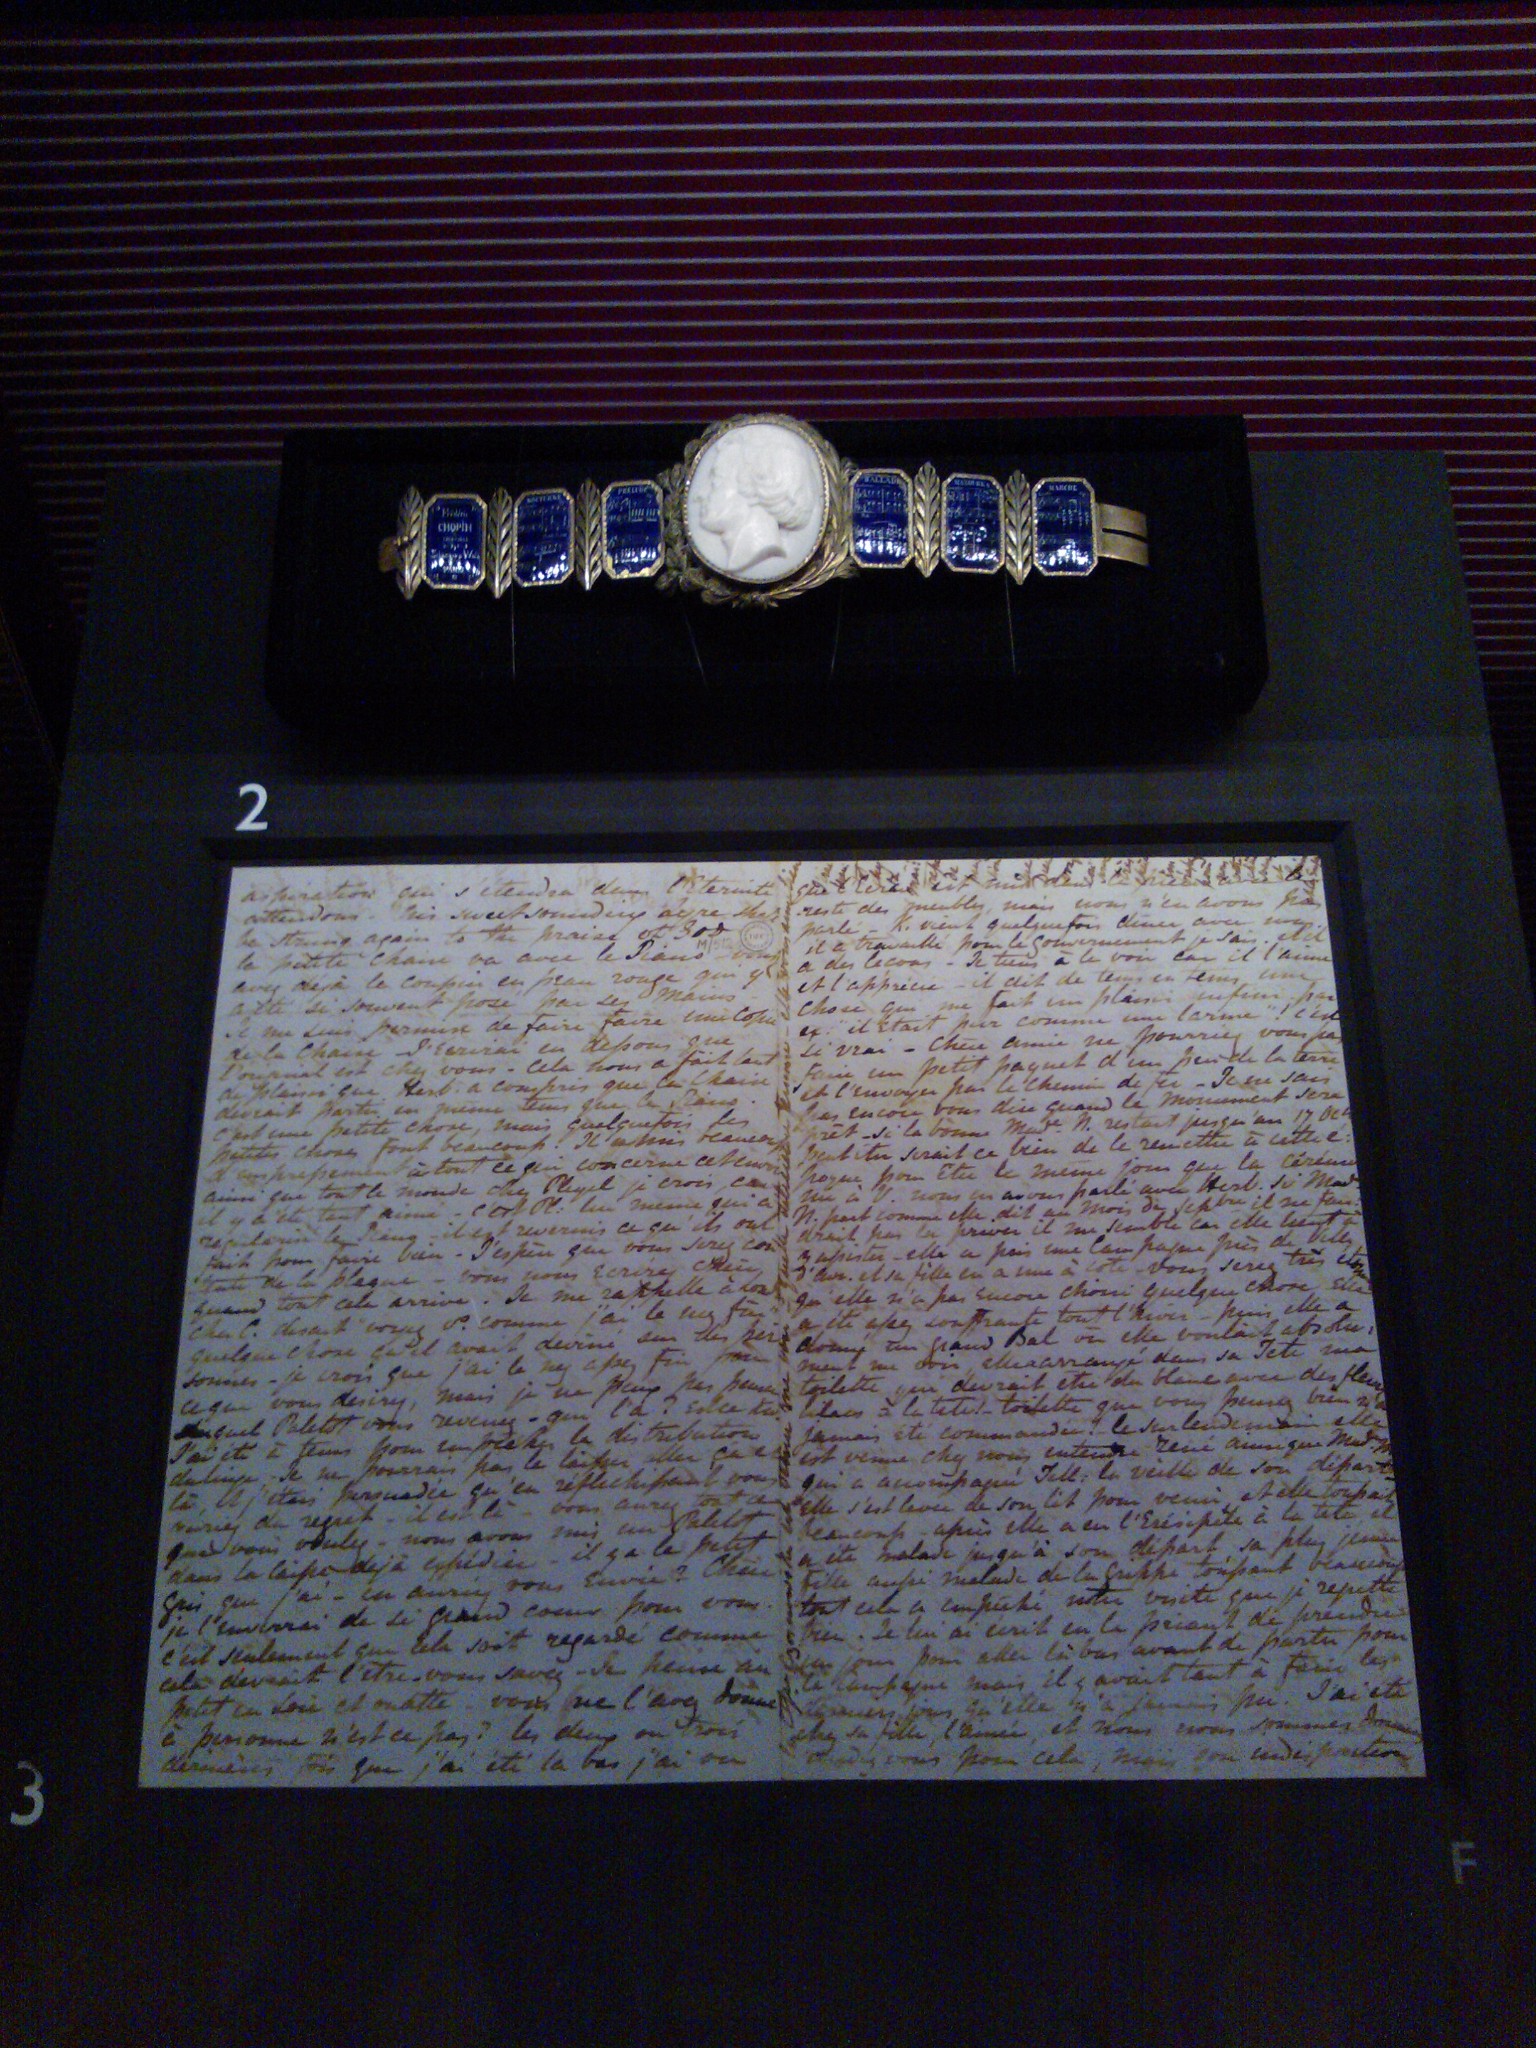 CHOPIN
NOCTURNE
PRELUDE
BALLADE
MAZOURKA
MARCHE
2
aspiration qui s'étendra dans l'Eternité
attendons - his sweet sounding lyre shall
be strung again to the praise of God
la petite chaise va avec le Piano - vous
avez déjà le coussin en peau rouge qui y
a été si souvent posé par ses mains -
je me suis permise de faire faire une Copie
de la Chaise - J'écrirai en dessous que
l'original est chez vous - Cela nous a fait tant
de plaisir que Herb. a compris que la Chaise
devrait partir en même tems que le Piano.
c'est une petite chose, mais quelquefois les
petites choses font beaucoup. Il a mis beaucoup
d'empressement à tout ce qui concerne cet envoi
ainsi que tout le monde chez Pleyel je crois, car
il y a été tant aimé - c'est Pl: lui même qui a
le Piano - ce qu'ils ont
fait pour faire bien - J'espère que vous serez con
tente de la plaque - vous nous écrirez chère,
quand tout cela arrive. Je me rappelle à
cher C. disait voyez v. comme j'ai le nez fin
quelque chose qu'il avait deviné sur des per
sonnes - je crois que j'ai le nez assez fin pour
ce que vous desirez, mais je ne peux pas penser
auquel Paletot vous revenez - que l'a?
J'ai été à tems pour empêcher la distribution
du linge - Je ne pourrais pas le laisser aller
là, et j'étais persuadée qu'en réflechissant vous
auriez du regret - il est là - vous aurez tout ce
que vous voulez - nous avons mis un Paletot
dans la caisse déjà expédiée - il y a le petit
gris que j'ai - en auriez vous envie? Chère
je l'enverrai de si grand coeur pour vous.
c'est seulement que cela soit regardé comme
cela devrait l'être - vous savez - Je pense au
petit en soie et ouatté - vous ne l'avez donné
à personne n'est ce pas? les deux ou trois
dernières fois que j'ai été la bas j'ai vu
que l'écran est mis dans le avec le
reste des meubles, mais nous n'en avons pas
parlé - K. vient quelquefois diner avec nous
il a travaillé pour le gouvernement je sais. et il
a des leçons - Je tiens à le voir car il l'aime
et l'apprécie - il dit de tems en tems une
chose qui me fait un plaisir infini, par
ex: "il était pur comme une larme"! c'est
si vrai - Chère amie ne pourriez vous pas
faire un petit paquet d'un peu de la terre
et l'envoyer par le chemin de fer - Je ne sais
pas encore vous dire quand le monument sera
prêt - si la bonne Made N. restait jusqu'au 17 Oct
peut être serait ce bien de le remettre à cette é-
poque pour être le même jour que la cérémo
nie à V. nous en avons parlé avec Herb. Si Made
N. part comme elle dit au mois de Septbre il ne fau-
drait pas la priver il me semble car elle tient à
y assister - elle a pris une Campagne près de Ville
d'Avr. et sa fille en a une à coté - vous serez très
qu'elle n'a pas encore choisi quelque chose, Elle
a été assez souffrante tout l'hiver - puis elle a
donné un grand Bal où elle voulait absolu:
ment me voir, elle a arrangé dans sa Tete ma
toilette qui devrait etre du blanc avec des fleurs
lilacs à la tete! - toilette que vous pensez bien n'a
jamais été commandée! - le surlendemain elle
est venue chez nous entendre René ainsi que Made M
qui a accompagné Tell: la vieille de son départ
elle s'est levée de son lit pour venir, et elle toussait
beaucoup - après elle a eu l'Erésipèle à la tete, et
a été malade jusqu'à son départ sa plus jeune
fille aussi malade de la Grippe toussant beaucoup
tout cela a empêché notre visite que je regrette
bien. Je lui ai écrit en la priant de prendre
un jour pour aller là bas avant de partir pour
la Campagne mais il y avait tant à faire les
derniers jours qu'elle n'a jamais pu. J'ai été
chez sa fille, l'ainée, et nous nous sommes donné
rendez vous pour cela, mais son indisposition
3
F